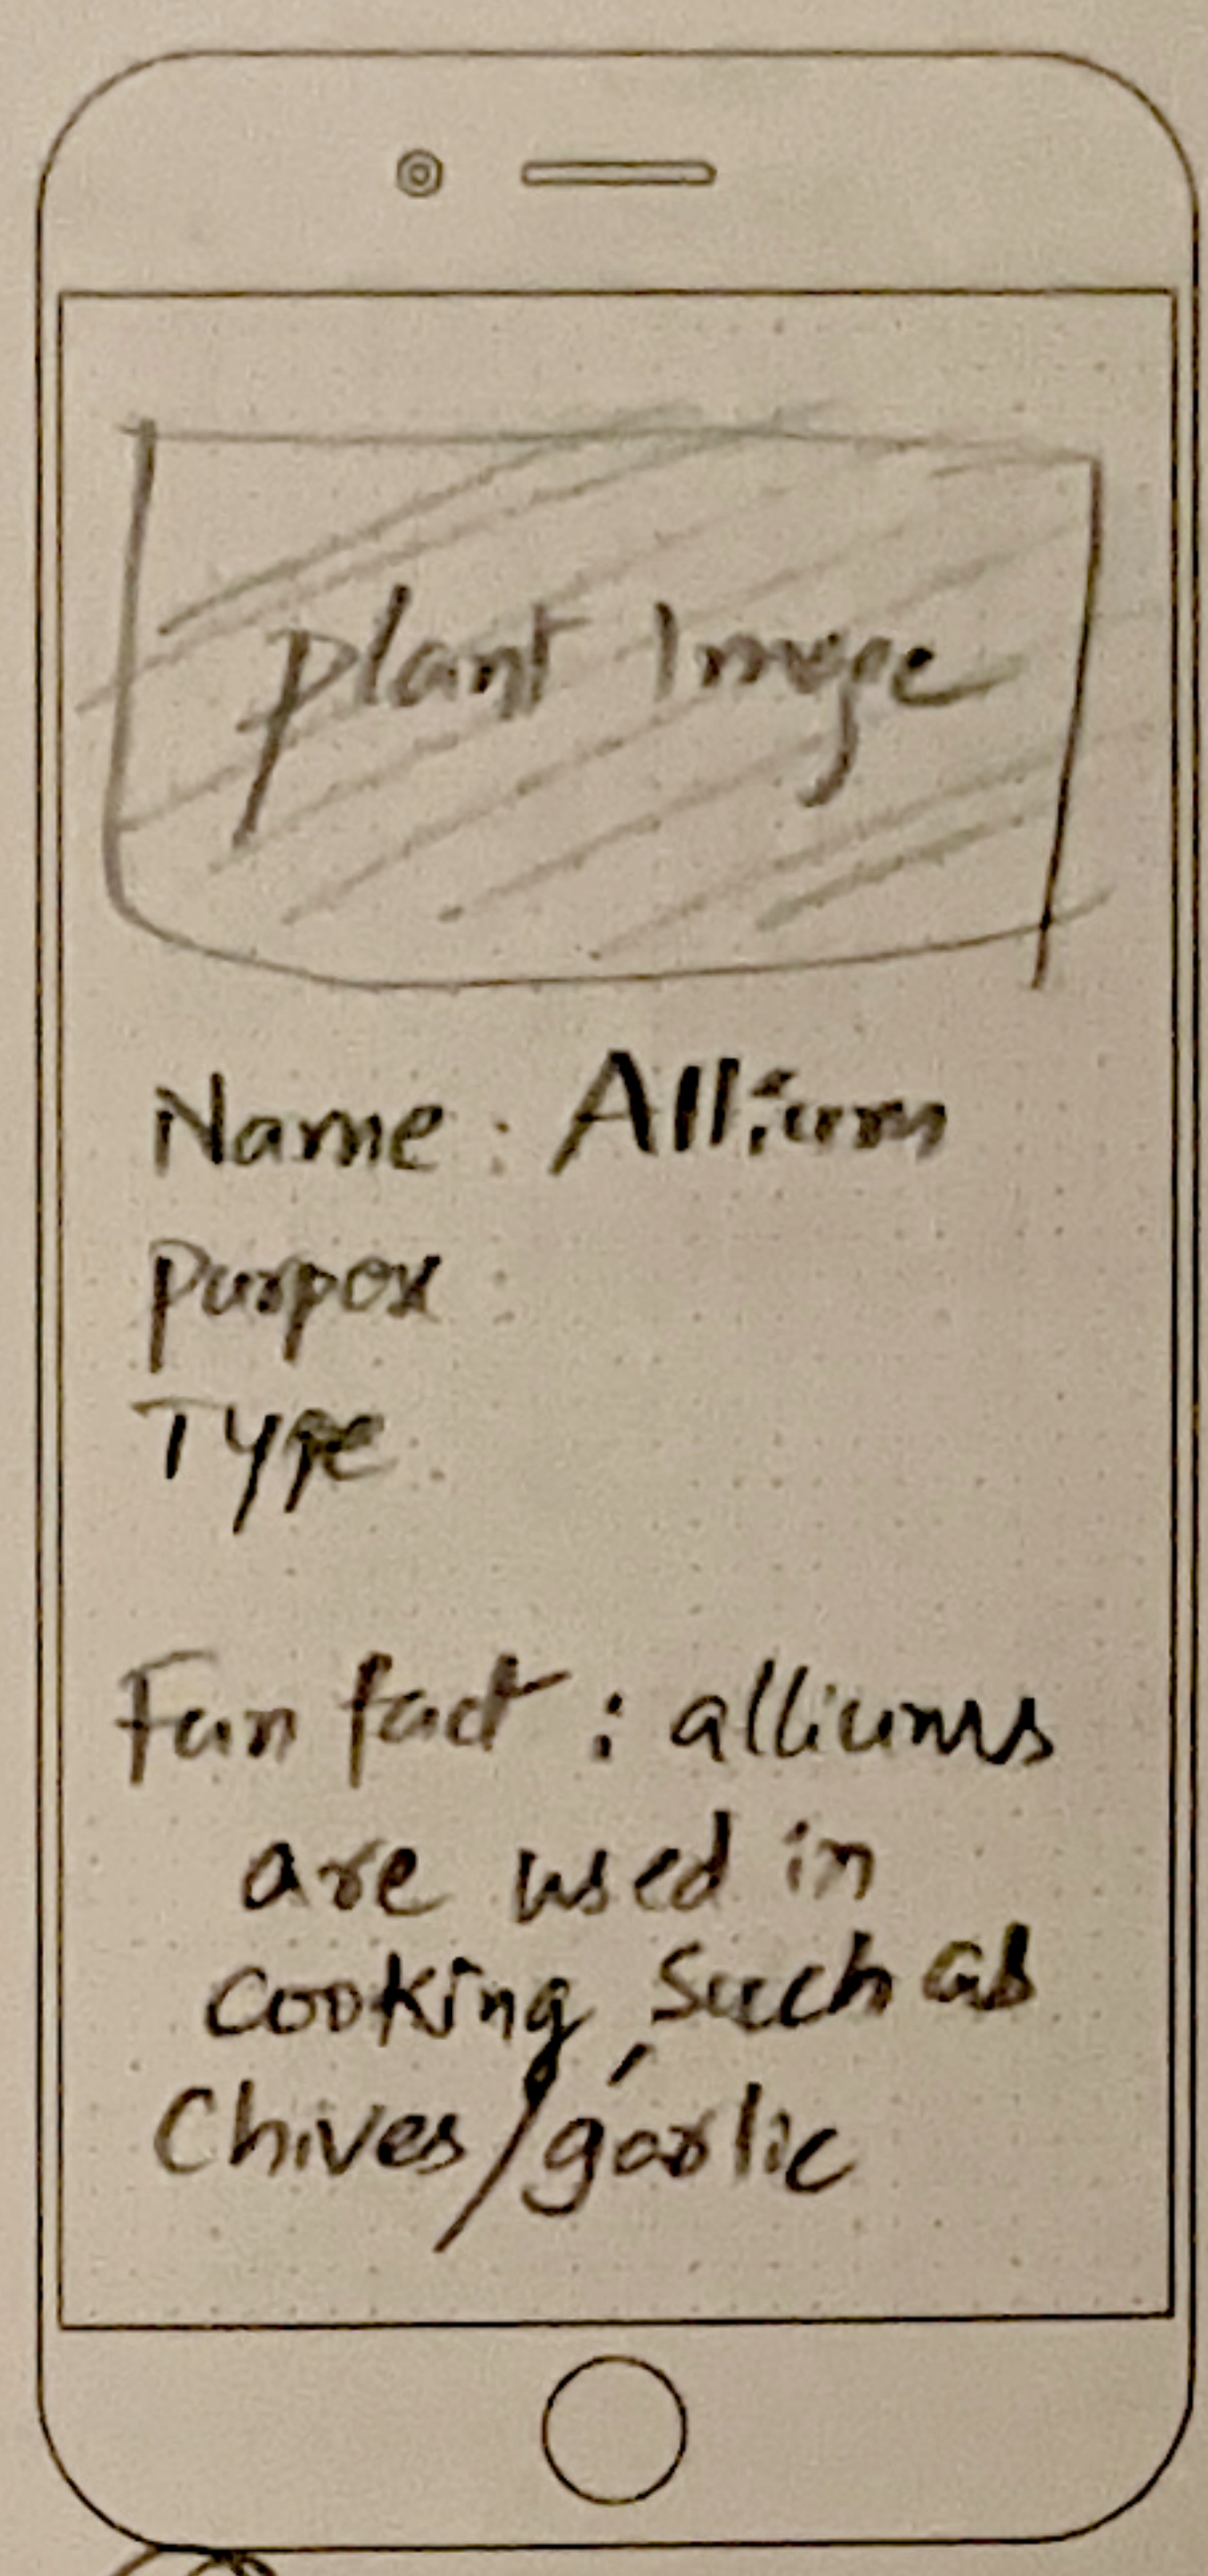 plant Image
Name : Allium
Purpose :
Type :
Fun fact : alliums
are used in
cooking, such as
Chives/garlic